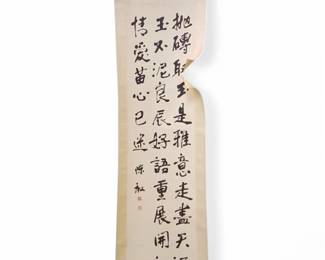 拋磚取玉是雅意走盡天
玉不泥良辰好語重展開
情愛苗心已迷
陳